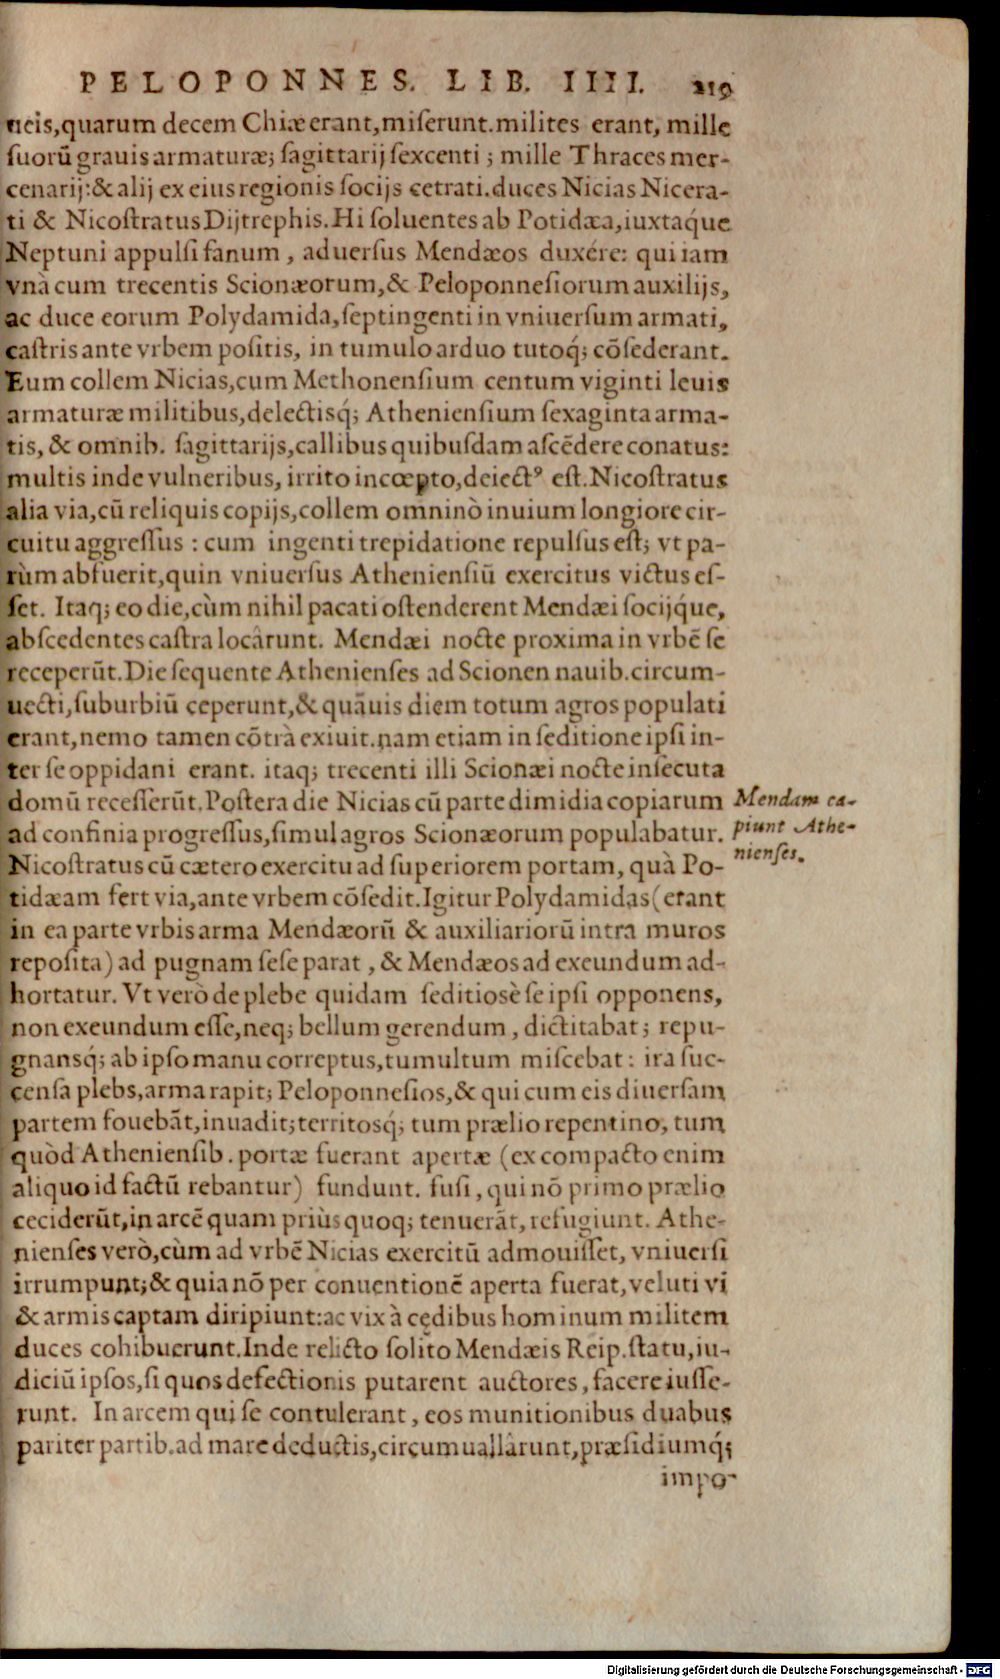 PELOPONNES. LIB. IIII. 219
neis, quarum decem Chiæ erant, miserunt. milites erant, mille
suorũ grauis armaturæ; sagittarij sexcenti; mille Thraces mer-
cenarij: & alij ex eius regionis socijs cetrati. duces Nicias Nicera-
ti & Nicostratus Dijtrephis. Hi soluentes ab Potidæa, iuxtaq́ue
Neptuni appulsi fanum, aduersus Mendæos duxére: qui iam
vnà cum trecentis Scionæorum, & Peloponnesiorum auxilijs,
ac duce eorum Polydamida, septingenti in vniuersum armati,
castris ante vrbem positis, in tumulo arduo tutoq́; cõsederant.
Eum collem Nicias, cum Methonensium centum viginti leuis
armaturæ militibus, delectisq́; Atheniensium sexaginta arma-
tis, & omnib. sagittarijs, callibus quibusdam ascẽdere conatus:
multis inde vulneribus, irrito incœpto, deiectꝰ est. Nicostratus
alia via, cũ reliquis copijs, collem omninò inuium longiore cir-
cuitu aggressus: cum ingenti trepidatione repulsus est; vt pa-
rùm abfuerit, quin vniuersus Atheniensiũ exercitus victus es-
set. Itaq; eo die, cùm nihil pacati ostenderent Mendæi socijq́ue,
abscedentes castra locârunt. Mendæi nocte proxima in vrbẽ se
receperũt. Die sequente Athenienses ad Scionen nauib. circum-
uecti, suburbiũ ceperunt, & quãuis diem totum agros populati
erant, nemo tamen cõtrà exiuit. nam etiam in seditione ipsi in-
ter se oppidani erant. itaq; trecenti illi Scionæi nocte insecuta
domũ recesserũt. Postera die Nicias cũ parte dimidia copiarum
ad confinia progressus, simul agros Scionæorum populabatur.
Nicostratus cũ cætero exercitu ad superiorem portam, quà Po-
tidæam fert via, ante vrbem cõsedit. Igitur Polydamidas (erant
in ea parte vrbis arma Mendæorũ & auxiliariorũ intra muros
reposita) ad pugnam sese parat, & Mendæos ad exeundum ad-
hortatur. Vt verò de plebe quidam seditiosè se ipsi opponens,
non exeundum esse, neq; bellum gerendum, dictitabat; repu-
gnansq́; ab ipso manu correptus, tumultum miscebat: ira suc-
censa plebs, arma rapit; Peloponnesios, & qui cum eis diuersam
partem fouebãt, inuadit; territosq́; tum prælio repentino, tum
quòd Atheniensib. portæ fuerant apertæ (ex compacto enim
aliquo id factũ rebantur) fundunt. fusi, qui nõ primo prælio
ceciderũt, in arcẽ quam priùs quoq; tenuerãt, refugiunt. Athe-
nienses verò, cùm ad vrbẽ Nicias exercitũ admouisset, vniuersi
irrumpunt; & quia nõ per conuentionẽ aperta fuerat, veluti vi
& armis captam diripiunt: ac vix à cędibus hominum militem
duces cohibuerunt. Inde relicto solito Mendæis Reip. statu, iu-
diciũ ipsos, si quos defectionis putarent auctores, facere iusse-
runt. In arcem qui se contulerant, eos munitionibus duabus
pariter partib. ad mare deductis, circumuallârunt, præsidiumq́;
impo-
Mendam ca-
piunt Athe-
nienses.
Digitalisierung gefördert durch die Deutsche Forschungsgemeinschaft - DFG